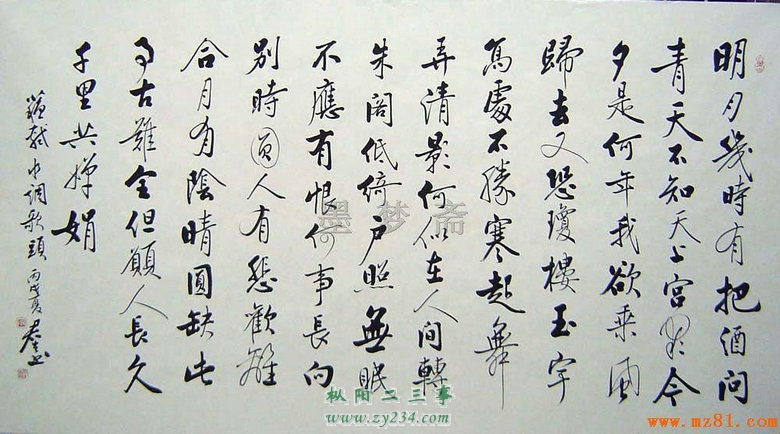 明月幾時有把酒問
青天不知天上宮闕今
夕是何年我欲乘風
歸去又恐瓊樓玉宇
高處不勝寒起舞
弄清影何似在人間轉
朱閣低綺戶照無眠
不應有恨何事長向
別時圓人有悲歡離
合月有陰晴圓缺此
事古難全但願人長久
千里共嬋娟
蘇軾水調歌頭 丙戌夏
墨梦斋
枞阳二三事
www.zy234.com
www.mz81.com